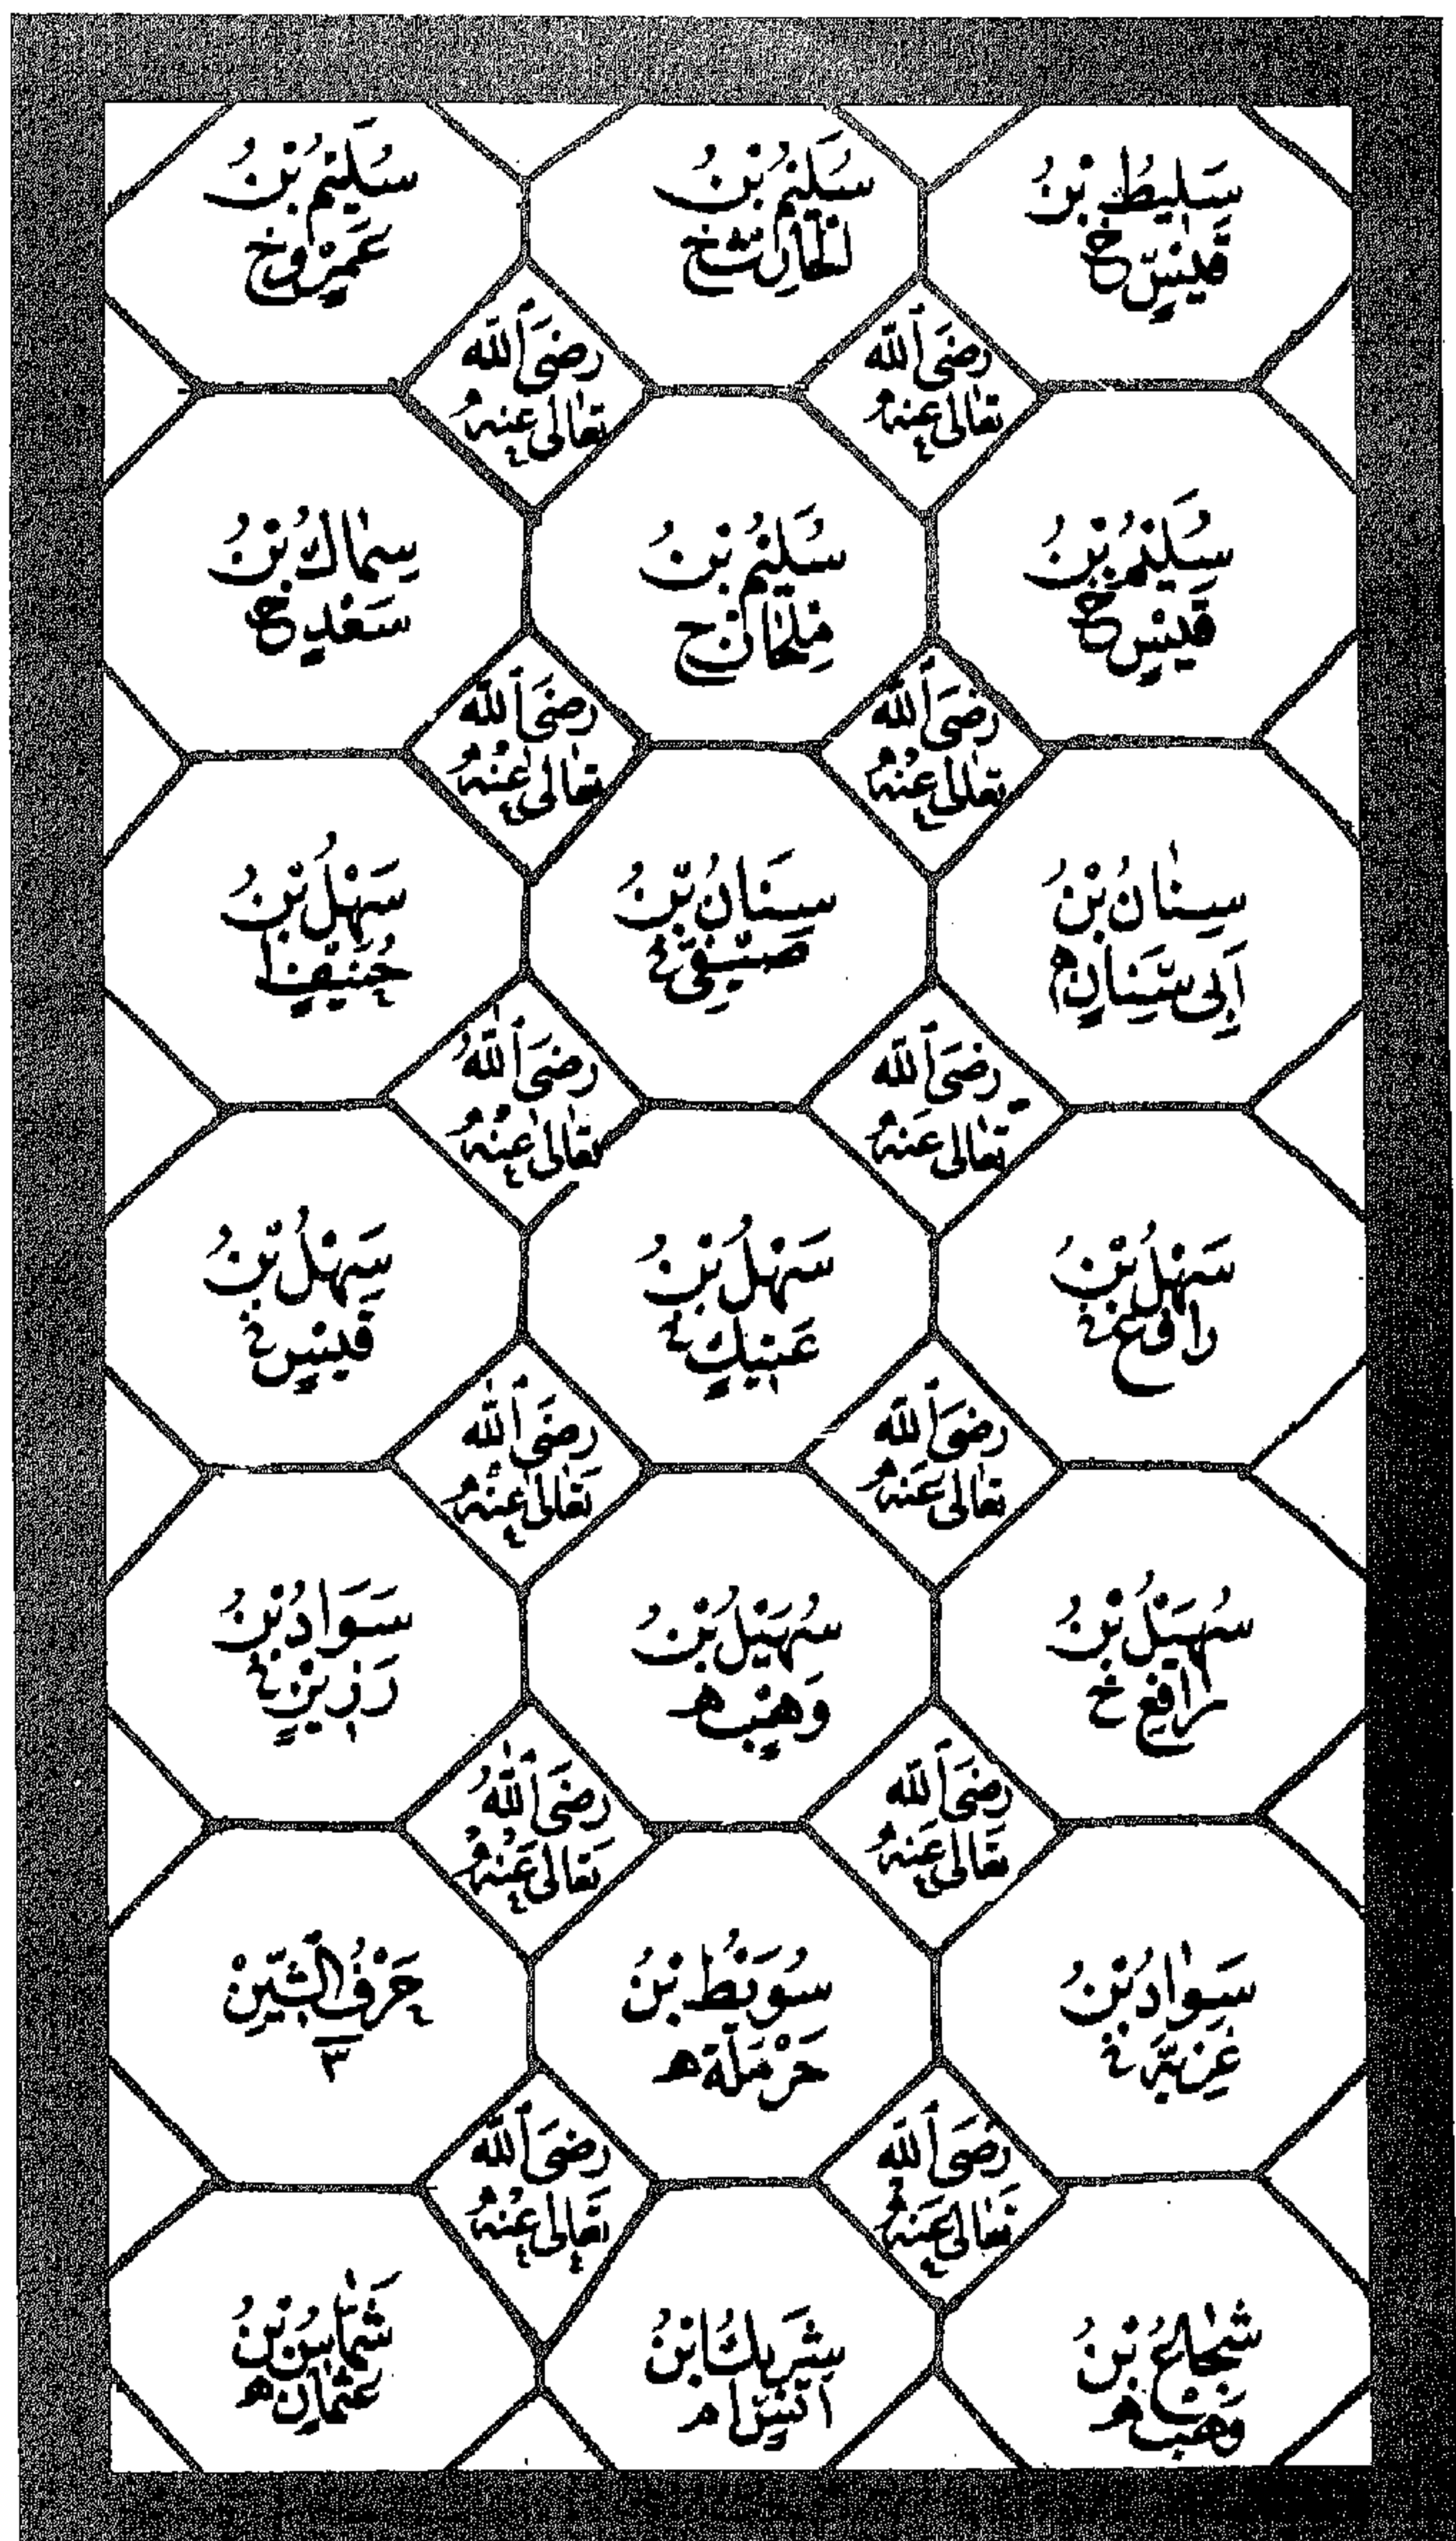 سَلِيطُ بْنُ
قَيْسٍ خ
سُلَيْمُ بْنُ
الْحَارِثِ خ
سُلَيْمُ بْنُ
عَمْرٍو خ
رَضِىَ ٱللّٰه
تَعَالٰى عَنْهُ
رَضِىَ ٱللّٰه
تَعَالٰى عَنْهُ
سُلَيْمُ بْنُ
قَيْسٍ خ
سُلَيْمُ بْنُ
مِلْحَانَ خ
سِمَاكُ بْنُ
سَعْدٍ خ
رَضِىَ ٱللّٰه
تَعَالٰى عَنْهُ
رَضِىَ ٱللّٰه
تَعَالٰى عَنْهُ
سِنَانُ بْنُ
اَبِى سِنَانٍ م
سِنَانُ بْنُ
صَيْفِىٍّ
سَهْلُ بْنُ
حُنَيْفٍ ا
رَضِىَ ٱللّٰه
تَعَالٰى عَنْهُ
رَضِىَ ٱللّٰه
تَعَالٰى عَنْهُ
سَهْلُ بْنُ
رَافِعٍ خ
سَهْلُ بْنُ
عَتِيكٍ خ
سَهْلُ بْنُ
قَيْسٍ خ
رَضِىَ ٱللّٰه
تَعَالٰى عَنْهُ
رَضِىَ ٱللّٰه
تَعَالٰى عَنْهُ
سُهَيْلُ بْنُ
رَافِعٍ خ
سُهَيْلُ بْنُ
وَهْبٍ م
سَوَادُ بْنُ
رَزِينٍ خ
رَضِىَ ٱللّٰه
تَعَالٰى عَنْهُ
رَضِىَ ٱللّٰه
تَعَالٰى عَنْهُ
سَوَادُ بْنُ
غَزِيَّة خ
سُوَيْبِطُ بْنُ
حَرْمَلَةَ م
حَرْفُ الشِّينْ
٣
رَضِىَ ٱللّٰه
تَعَالٰى عَنْهُ
رَضِىَ ٱللّٰه
تَعَالٰى عَنْهُ
شُجَاعُ بْنُ
وَهْبٍ م
شَرِيكُ ابْنُ
اَنَسٍ ا م
شَمَّاسُ بْنُ
عُثْمَانَ م